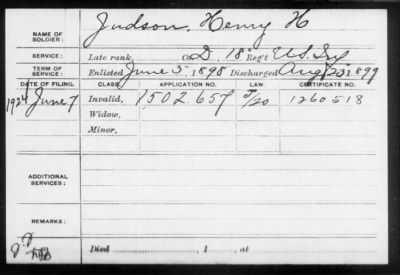 NAME OF SOLDIER: Judson, Henry H
SERVICE: Late rank, Co. D, 18" Reg't U.S. Inf
TERM OF SERVICE: Enlisted June 3", 1898 Discharged Aug 23, 1899
DATE OF FILING. CLASS. APPLICATION NO. LAW. CERTIFICATE NO.
1924 June 7 Invalid, 1502.657 5/20 1260518
Widow,
Minor,
ADDITIONAL SERVICES:
REMARKS:
Died , 1 , at